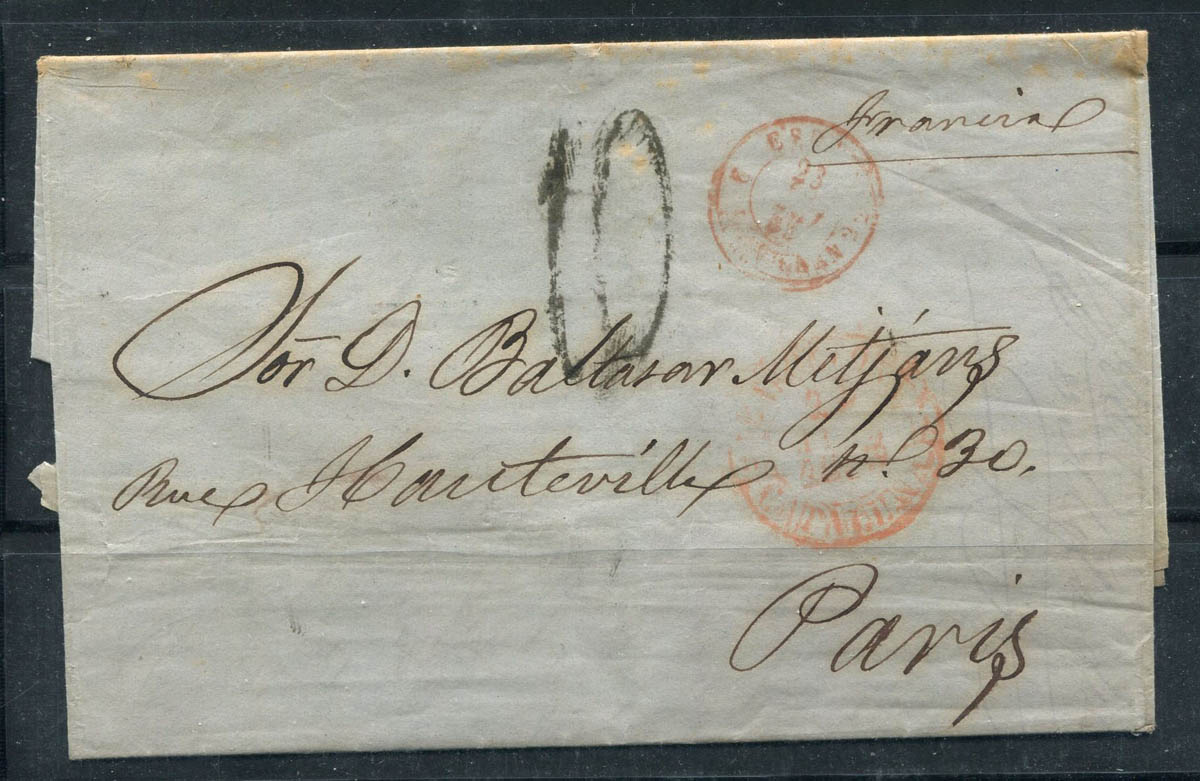 Francia
10
23
Sõr D. Baltasar Metjáns
Rue Hauteville nº 30.
CARTAGENA
Paris